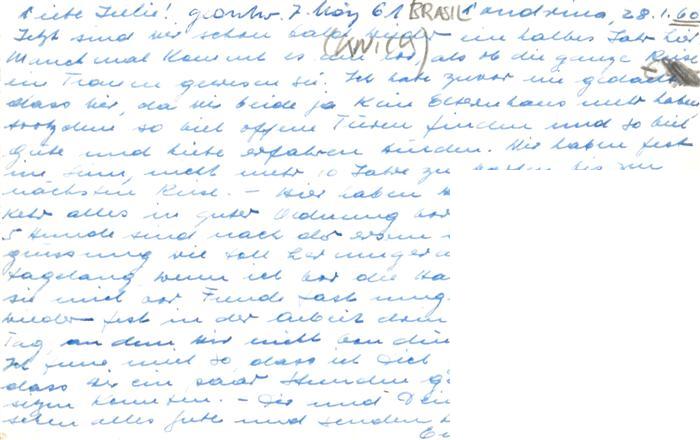 Liebe Julie! geantw. 7. März 61 BRASIL Londrina, 28.1.60
Jetzt sind wir schon bald wieder ein halbes Jahr hier
(KNICH)
Manchmal kommt es mir vor, als ob die ganze Reise
ein Traum gewesen sei. Ich hatte zuvor nie gedacht,
dass wir, da wir beide ja kein Elternhaus mehr haben
trotzdem so viel offene Türen finden und so viel
Gute und Liebe erfahren würden. Wir haben fest
im Sinn, nicht mehr 10 Jahre zu warten bis zur
nächsten Reise. – Hier haben
kehr alles in guter Ordnung vor
5 Hunde sind nach der ersten
grüssung wie toll herumger
tagelang, wenn ich vor die Ha
sie mich vor Freude fast umg
wieder fest in der Arbeit drin
Tag, an dem wir nicht von
Ich freue mich so, dass ich Dich
dass wir ein paar Stunden g
sitzen konnten. – Dir und Dein
schen alles Gute und senden